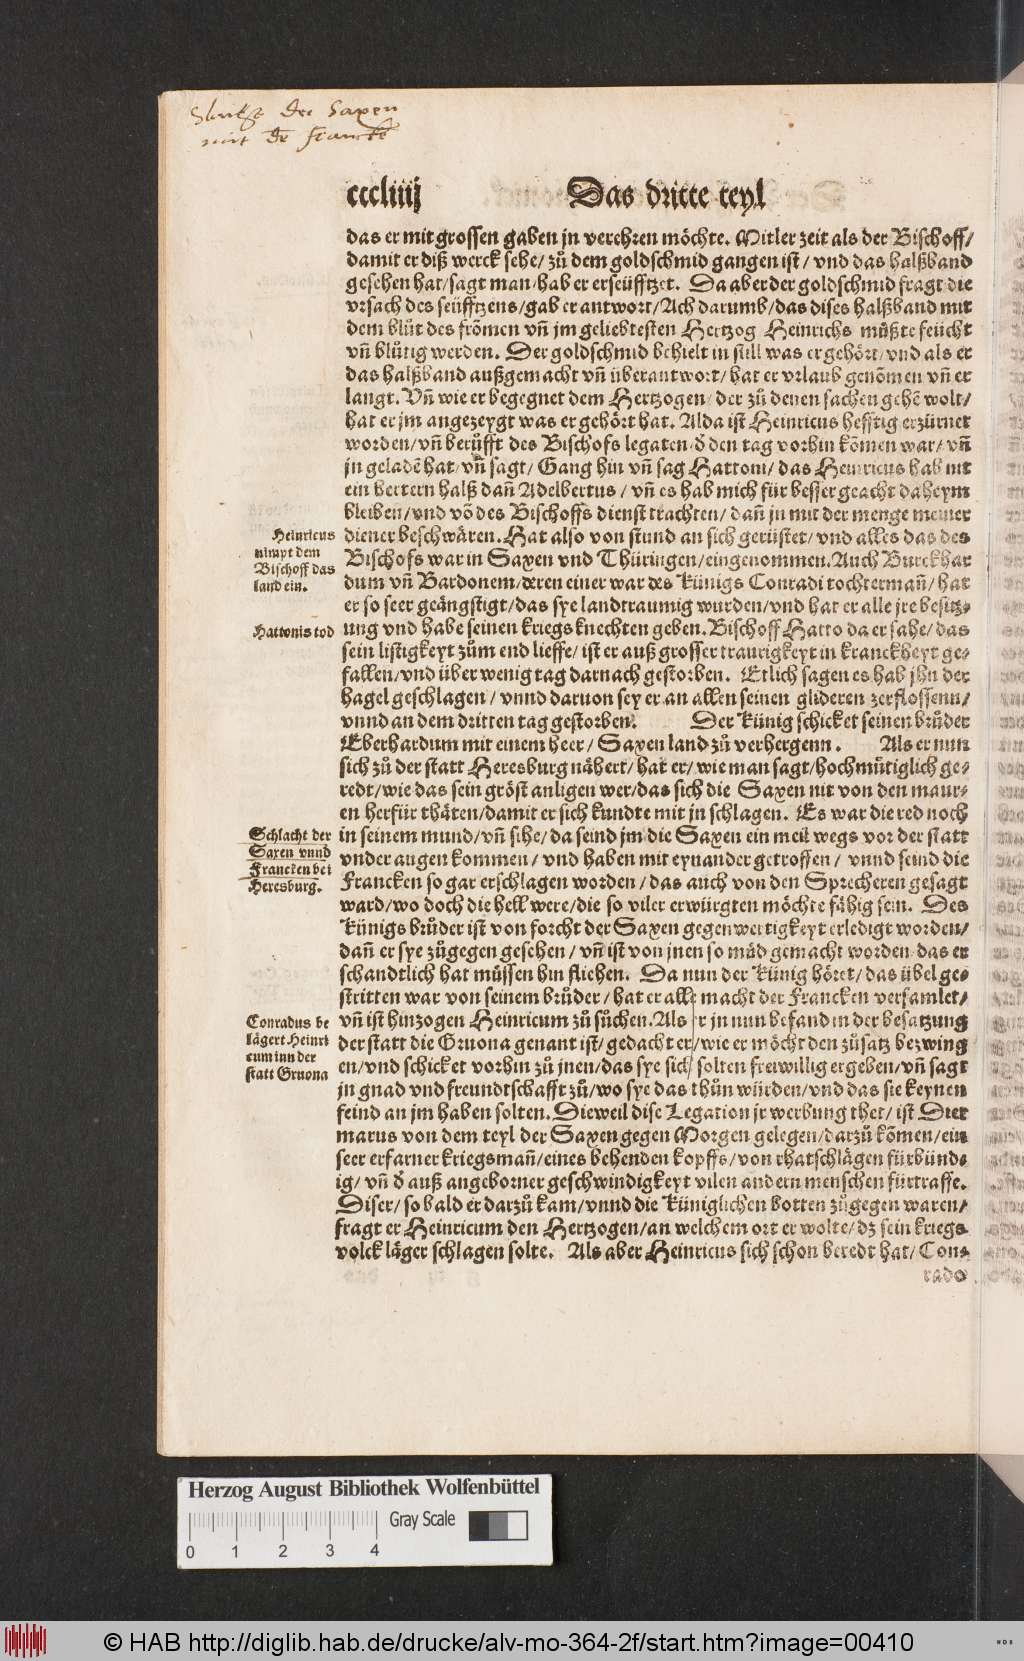 Slacht der Saxen
mit dē Franckē
cccliiij
Das dritte teyl
das er mit grossen gaben jn verehren möchte. Mitler zeit als der Bischoff/
damit er diß werck sehe/ zů dem goldschmid gangen ist/ vnd das halßband
gesehen hat/ sagt man/ hab er erseüfftzet. Da aber der goldschmid fragt die
vrsach des seüfftzens/ gab er antwort/ Ach darumb/ das dises halßband mit
dem blůt des frõmen vñ jm geliebtesten Hertzog Heinrichs müßte feücht
vñ blůtig werden. Der goldschmid behielt in still was er gehört/ vnd als er
das halßband außgemacht vñ überantwort/ hat er vrlaub genõmen vñ er
langt. Vñ wie er begegnet dem Hertzogen/ der zů denen sachen gehẽ wolt/
hat er jm angezeygt was er gehört hat. Alda ist Heinricus hefftig erzürnet
worden/ vñ berüfft des Bischofs legaten/ ď den tag vorhin kõmen war/ vñ
jn geladẽ hat/ vñ sagt/ Gang hin vñ sag Hattoni/ das Heinricus hab nit
ein hertern halß dañ Adelbertus/ vñ es hab mich für besser geacht daheym
bleiben/ vnd võ des Bischoffs dienst trachten/ dañ jn mit der menge meiner
diener beschwären. Hat also von stund an sich gerüstet/ vnd alles das des
Bischofs war in Saxen vnd Thüringen/ eingenommen. Auch Burckhar
dum vñ Bardonem/ deren einer war des Künigs Conradi tochtermañ/ hat
er so seer geängstigt/ das sye landtraumig wurden/ vnd hat er alle jre besitz⸗
ung vnd habe seinen kriegs knechten geben. Bischoff Hatto da er sahe/ das
sein listigkeyt zům end lieffe/ ist er auß grosser traurigkeyt in kranckheyt ge⸗
fallen/ vnd über wenig tag darnach gestorben. Etlich sagen es hab jhn der
hagel geschlagen/ vnnd daruon sey er an allen seinen glideren zerflossenn/
vnnd an dem dritten tag gestorben. Der Künig schicket seinen brůder
Eberhardum mit einem heer/ Saxen land zů verhergenn. Als er nun
sich zů der statt Heresburg nähert/ hat er/ wie man sagt/ hochmütiglich ge⸗
redt/ wie das sein gröst anligen wer/ das sich die Saxen nit von den maur⸗
en herfür thäten/ damit er sich kundte mit jn schlagen. Es war die red noch
in seinem mund/ vñ sihe/ da seind jm die Saxen ein meil wegs vor der statt
vnder augen kommen/ vnd haben mit eynander getroffen/ vnnd seind die
Francken so gar erschlagen worden/ das auch von den Sprecheren gesagt
ward/ wo doch die hell were/ die so viler erwürgten möchte fähig sein. Des
Künigs brůder ist von forcht der Saxen gegenwertigkeyt erledigt worden/
dañ er sye zůgegen gesehen/ vñ ist von jnen so mäd gemacht worden/ das er
schandtlich hat müssen hin fliehen. Da nun der Künig höret/ das übel ge⸗
stritten war von seinem brůder/ hat er alle macht der Francken versamlet/
vñ ist hinzogen Heinricum zů sůchen. Als er jn nun befand in der besatzung
der statt die Gruona genant ist/ gedacht er/ wie er möcht den zůsatz bezwing
en/ vnd schicket vorhin zů jnen/ das sye sich solten freiwillig ergeben/ vñ sagt
jn gnad vnd freundtschafft zů/ wo sye das thůn würden/ vnd das sie keynen
feind an jm haben solten. Dieweil dise Legation jr werbung thet/ ist Diet
marus von dem teyl der Saxen gegen Morgen gelegen/ darzů kõmen/ ein
seer erfarner kriegsmañ/ eines behenden kopffs/ von rhatschlägen fürbünd⸗
ig/ vñ ď auß angeborner geschwindigkeyt vilen andern menschen fürtraffe.
Diser/ so bald er darzů kam/ vnnd die Küniglichen botten zůgegen waren/
fragt er Heinricum den Hertzogen/ an welchem ort er wolte/ dz sein kriegs
volck läger schlagen solte. Als aber Heinricus sich schon beredt hat/ Con⸗
rado
Heinricus
nimpt dem
Bischoff das
land ein.
Hattonis tod
Schlacht der
Saxen vnnd
Francken bei
Heresburg.
Conradus be
lägert Heinri
cum inn der
statt Gruona
Herzog August Bibliothek Wolfenbüttel
Gray Scale
0 1 2 3 4
© HAB http://diglib.hab.de/drucke/alv-mo-364-2f/start.htm?image=00410